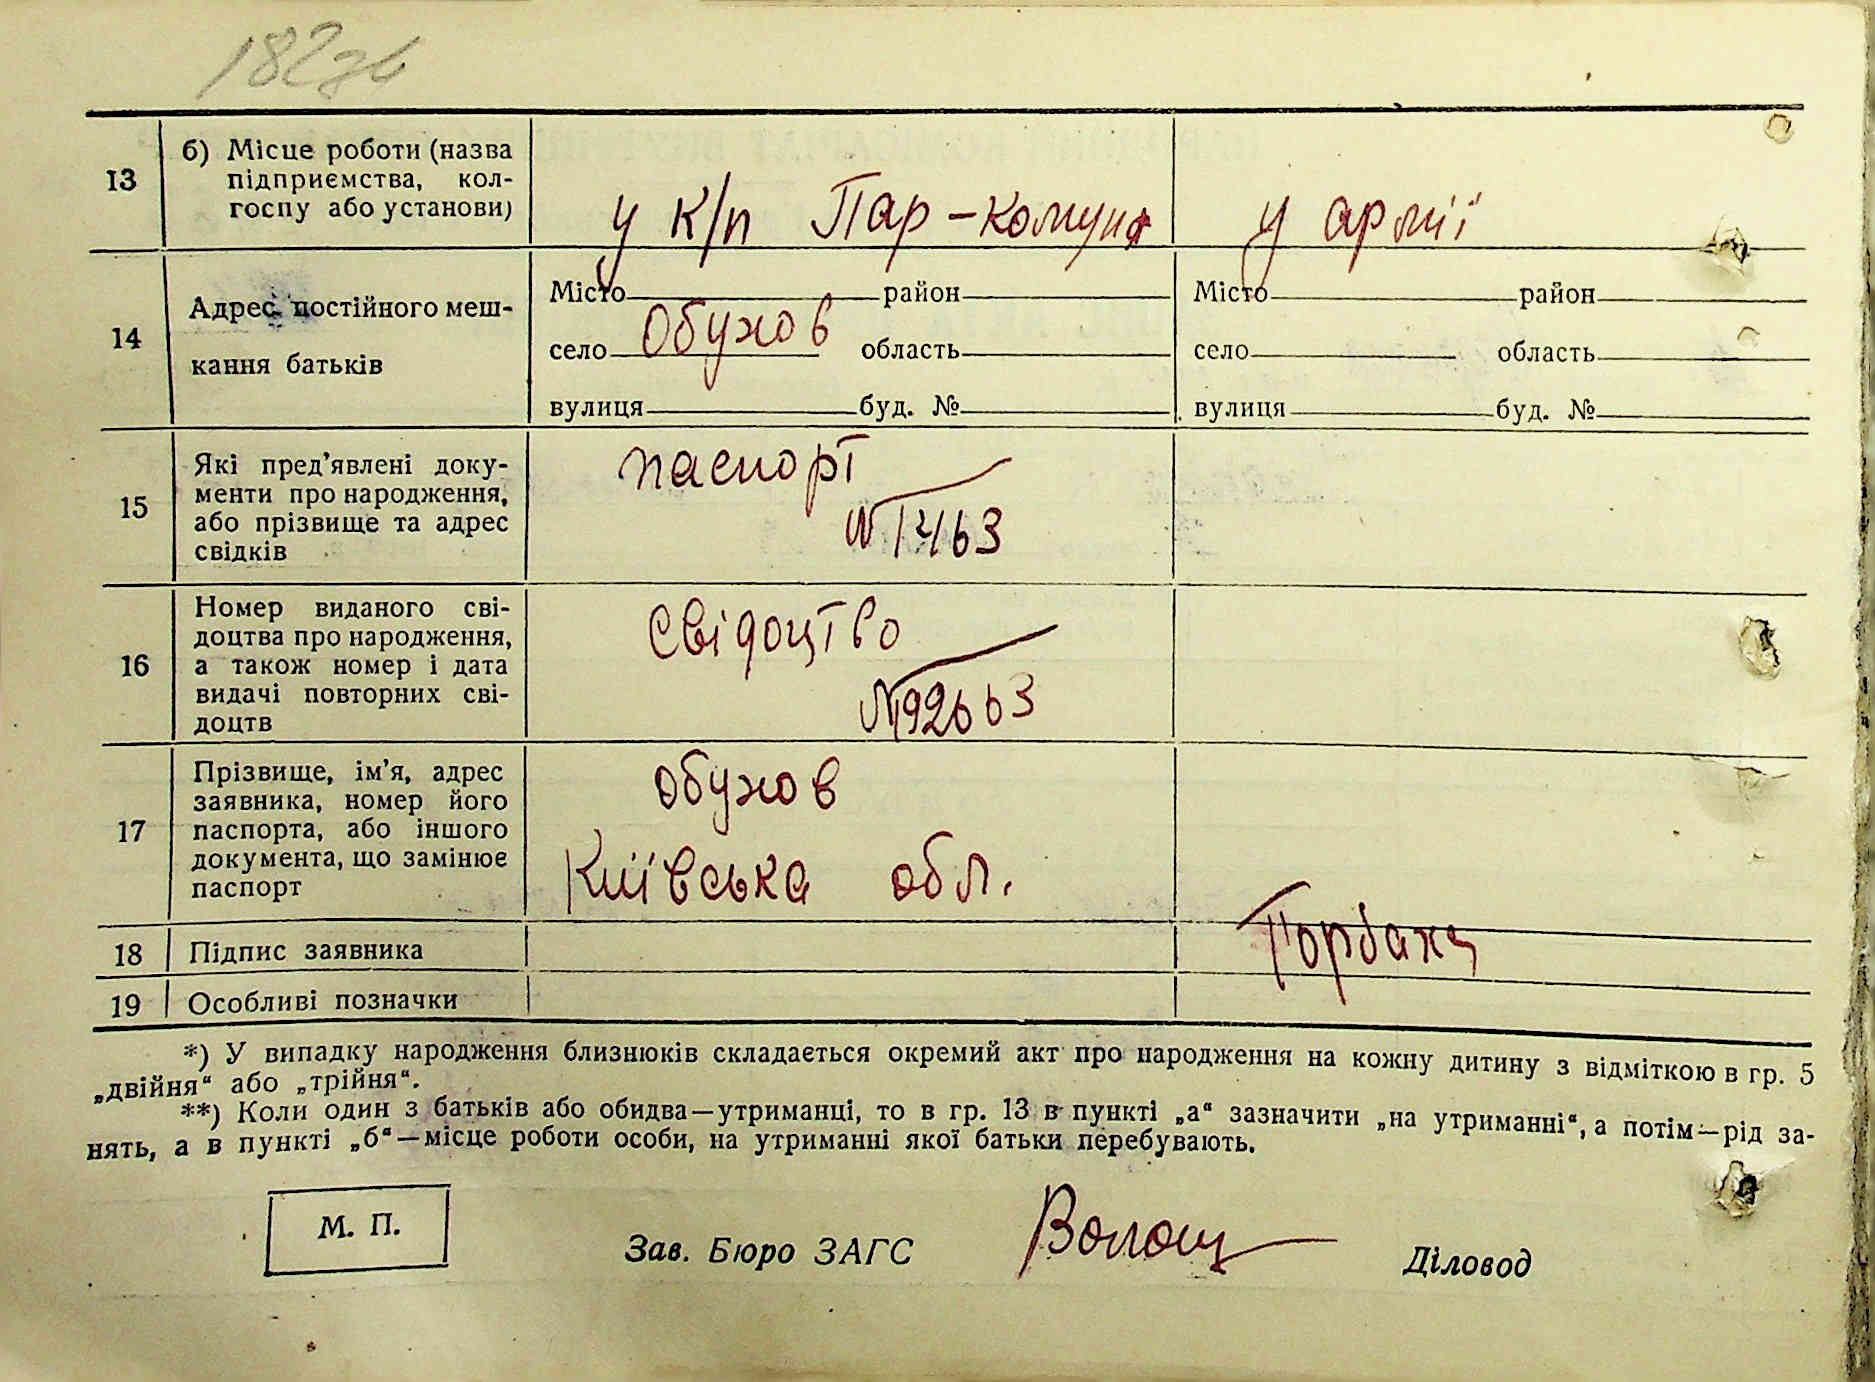 182зв
13
б) Місце роботи (назва
підприємства, кол-
госпу або установи)
у к/п Пар-комуна
у армії
14
Адрес постійного меш-
кання батьків
Місто район
село Обухов область
вулиця буд. №
Місто район
село область
вулиця буд. №
15
Які пред’явлені доку-
менти про народження,
або прізвище та адрес
свідків
паспорт
№ 1463
16
Номер виданого сві-
доцтва про народження,
а також номер і дата
видачі повторних сві-
доцтв
свідоцтво
№ 92663
17
Прізвище, ім’я, адрес
заявника, номер його
паспорта, або іншого
документа, що замінює
паспорт
Обухов
Київська обл.
18 Підпис заявника
19 Особливі позначки
*) У випадку народження близнюків складається окремий акт про народження на кожну дитину з відміткою в гр. 5
„двійня“ або „трійня“.
**) Коли один з батьків або обидва—утриманці, то в гр. 13 в пункті „а“ зазначити „на утриманні“, а потім—рід за-
нять, а в пункті „б“—місце роботи особи, на утриманні якої батьки перебувають.
М. П.
Зав. Бюро ЗАГС Волощ Діловод